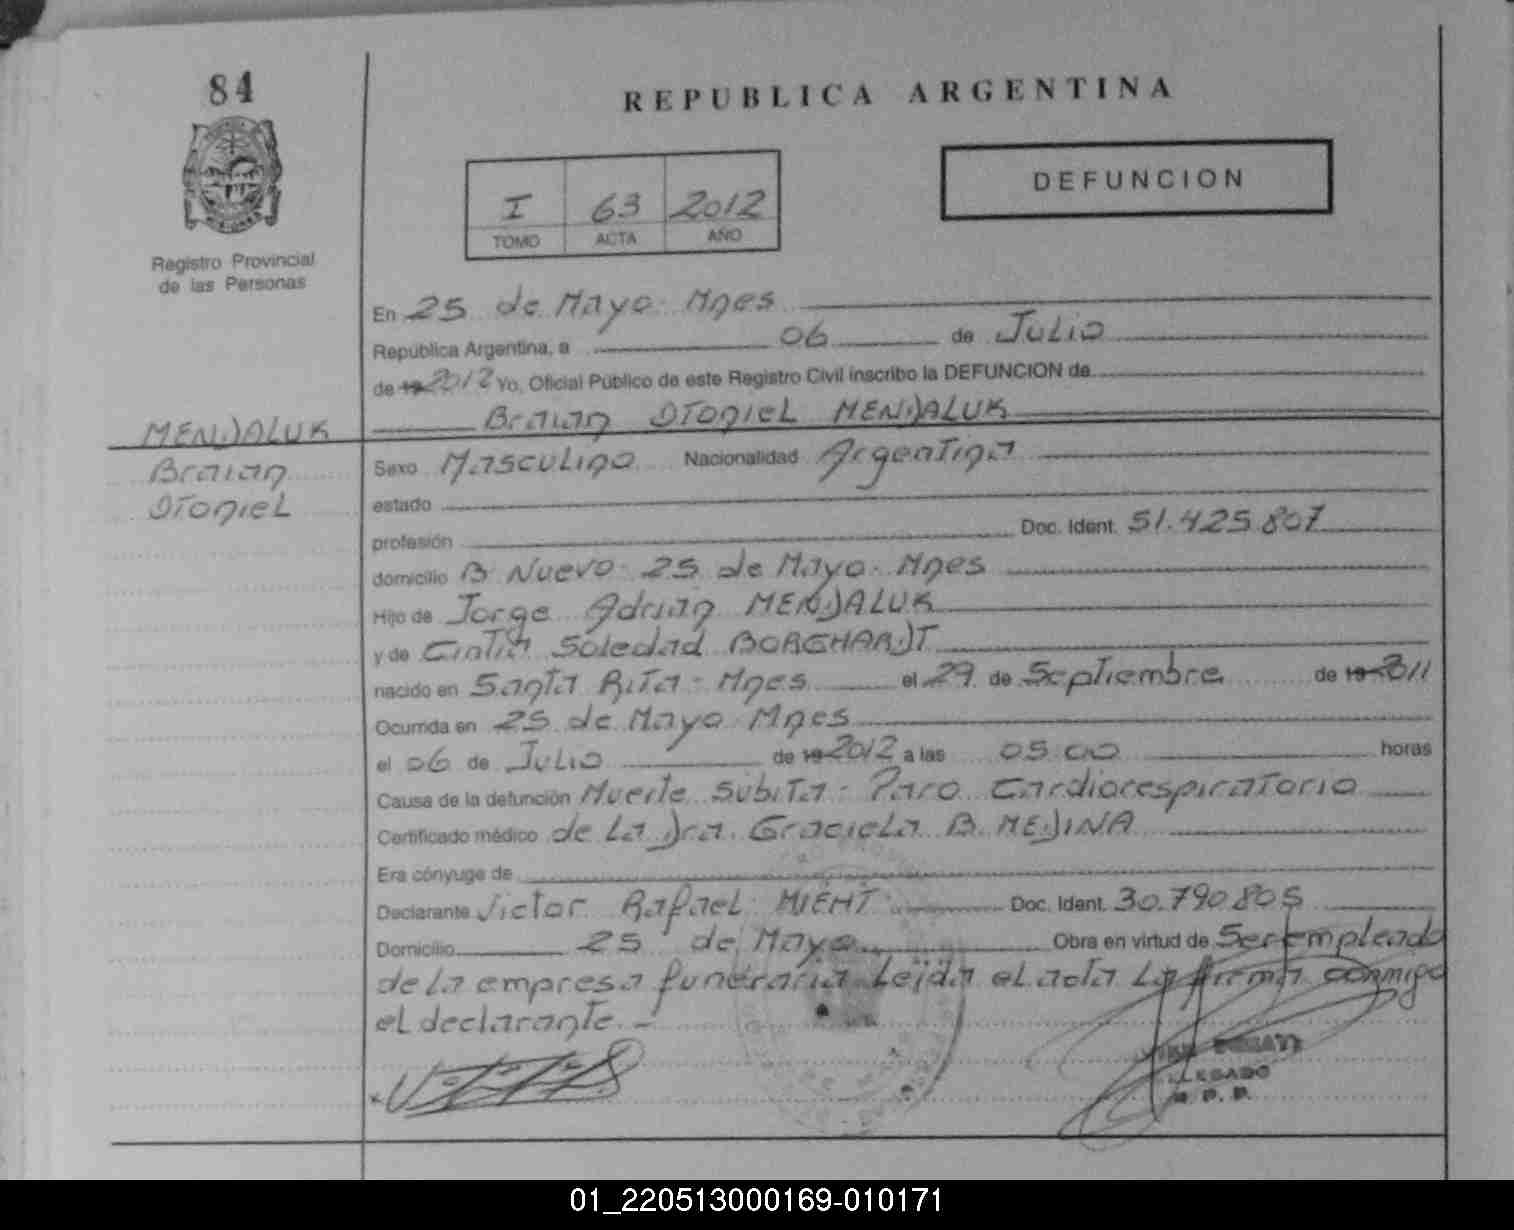 84
REPUBLICA ARGENTINA
DEFUNCION
I 63 2012
TOMO ACTA AÑO
Registro Provincial
de las Personas
En 25 de Mayo - Mnes
República Argentina, a 06 de Julio
de 19 2012 Yo, Oficial Público de este Registro Civil inscribo la DEFUNCION de
Braian Otoniel MENDALUK
MENDALUK
Braian
Otoniel
Sexo Masculino Nacionalidad Argentina
estado
profesión Doc. Ident. 51.425.807
domicilio B Nuevo - 25 de Mayo - Mnes
Hijo de Jorge Adrian MENDALUK
y de Cintia Soledad BORGHARDT
nacido en Santa Rita - Mnes el 29 de Septiembre de 19 2011
Ocurrida en 25 de Mayo Mnes
el 06 de Julio de 19 2012 a las 05:00 horas
Causa de la defunción Muerte Subita - Paro Cardiorespiratorio
Certificado médico de La Dra. Graciela B. MEDINA
Era cónyuge de
Declarante Victor Rafael Doc. Ident. 30.790.805
Domicilio 25 de Mayo Obra en virtud de Ser empleado
de La empresa funeraria Leida el acta La firma conmigo
el declarante. -
R. P. P.
01_220513000169-010171